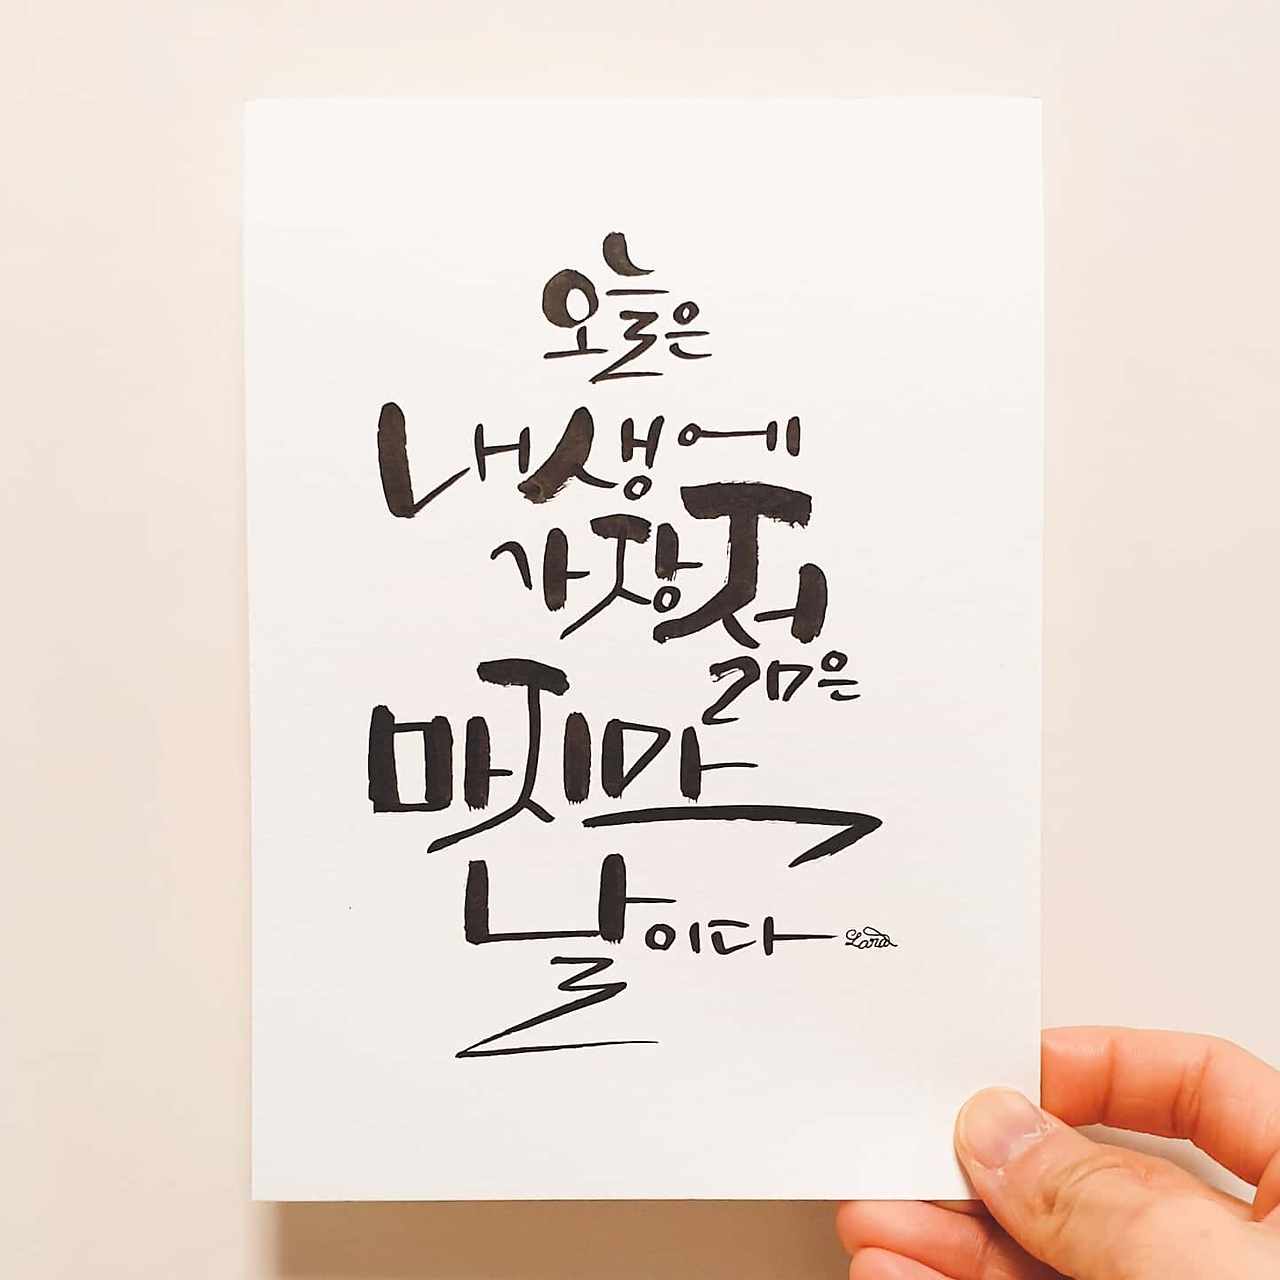 오늘은
내생에
가장젊은
마지막
날이다
Lara